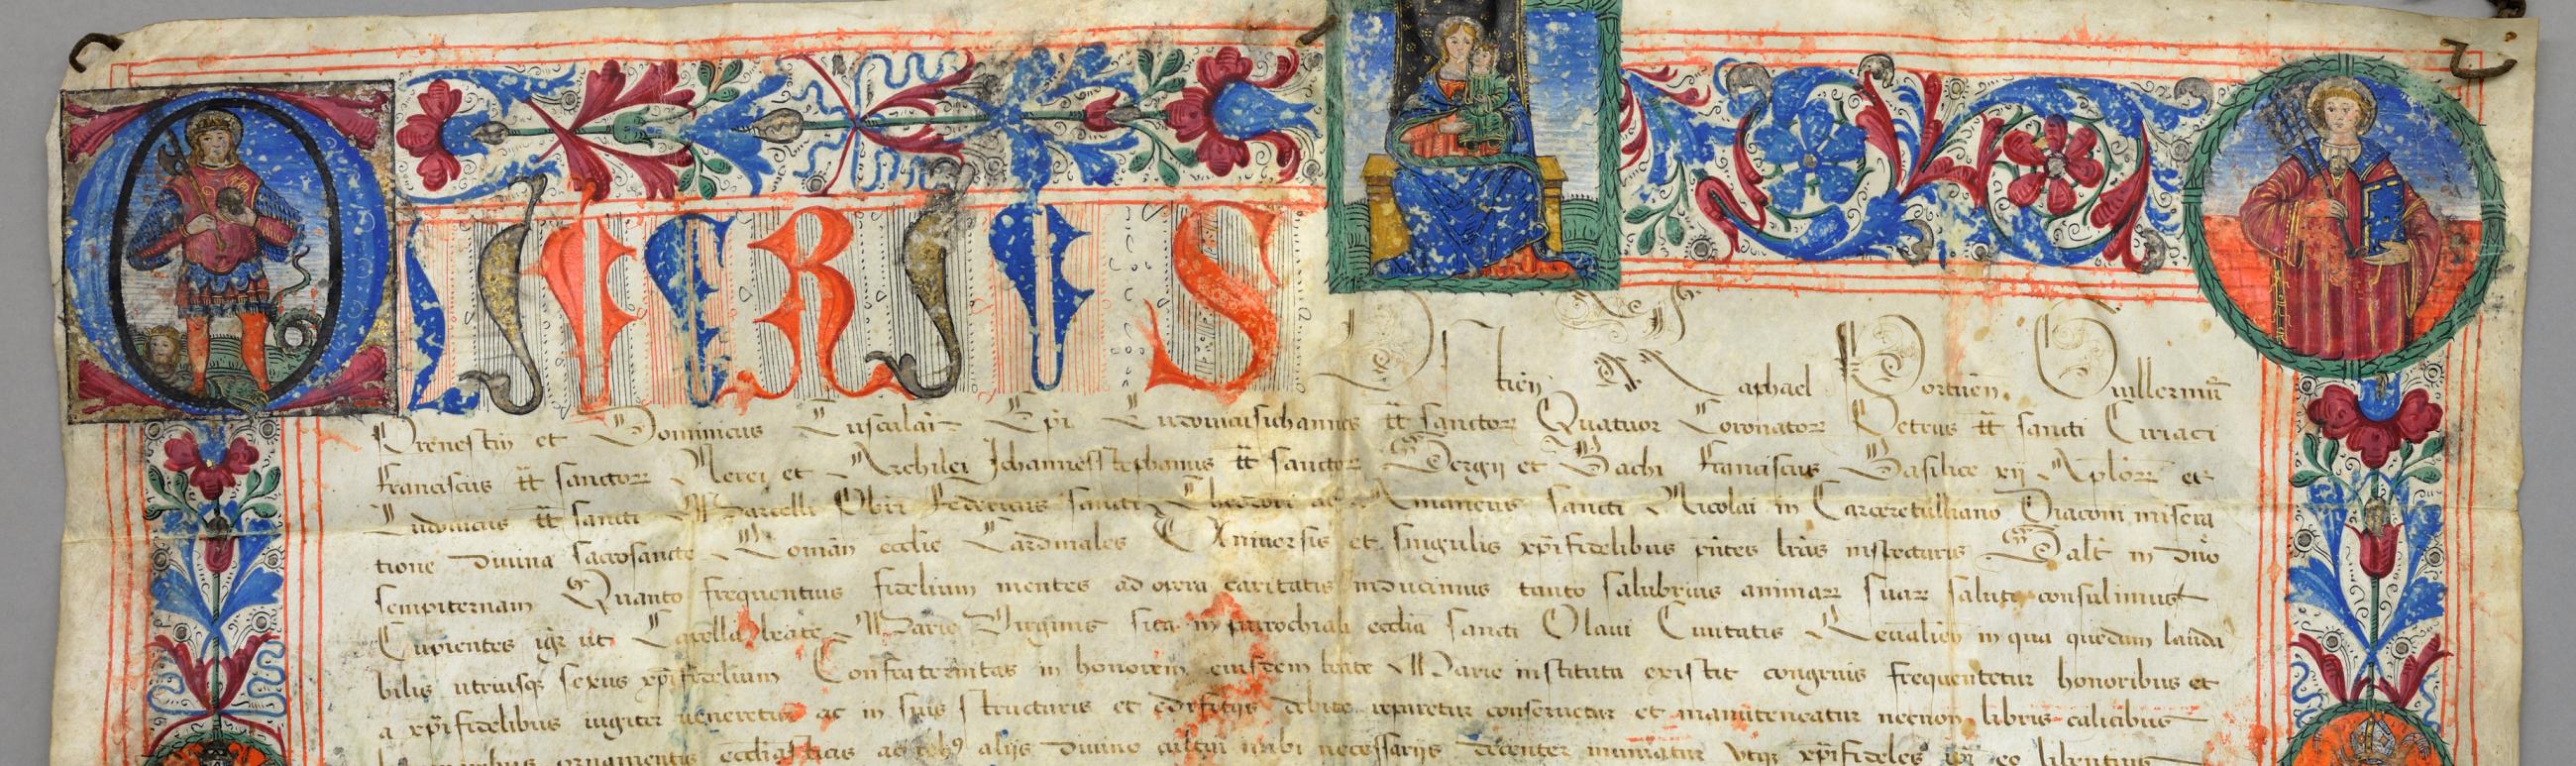 OLIVERIUS
Ostien Raphael Portuen Guillermus
Prenestin et Dominicus Tusculan Epi Ludovicusiohannes tt sanctor Quatuor Coronator Petrus tt sancti Ciriaci
Franciscus tt sanctor Nerei et Archilei Johannesstephanus tt sanctor Sergij et Bachi Franciscus Basilice xij Aplor et
Ludovicus tt sancti Marcelli Pbri Federicus sancti Theodori ac Amaneus sancti Nicolai in Carceretulliano Diaconi misera
tione divina sacrosancte Roman ecclie Cardinales Universis et singulis xpifidelibus pntes lras inspecturis Salt in dno
sempiternam Quanto frequentius fidelium mentes ad opera caritatis inducimus tanto salubrius animar suar saluti consulimus
Cupientes igr ut Capella beate Marie Virginis sita in parrochiali ecclia sancti Olaui Ciuitatis Reualien in qua quedam lauda
bilis utriusq sexus xpifidelium Confraternitas in honorem eiusdem beate Marie instituta existit congruis frequentetur honoribus et
a xpifidelibus iugiter ueneretur ac in suis structuris et edificijs debite reparetur conseruetur et manuteneatur necnon libris calicibus
ornamentis ecclesiasticis ac rebus alijs diuino cultui inibi necessarijs decenter muniatur utq xpifideles ipi eo libentius